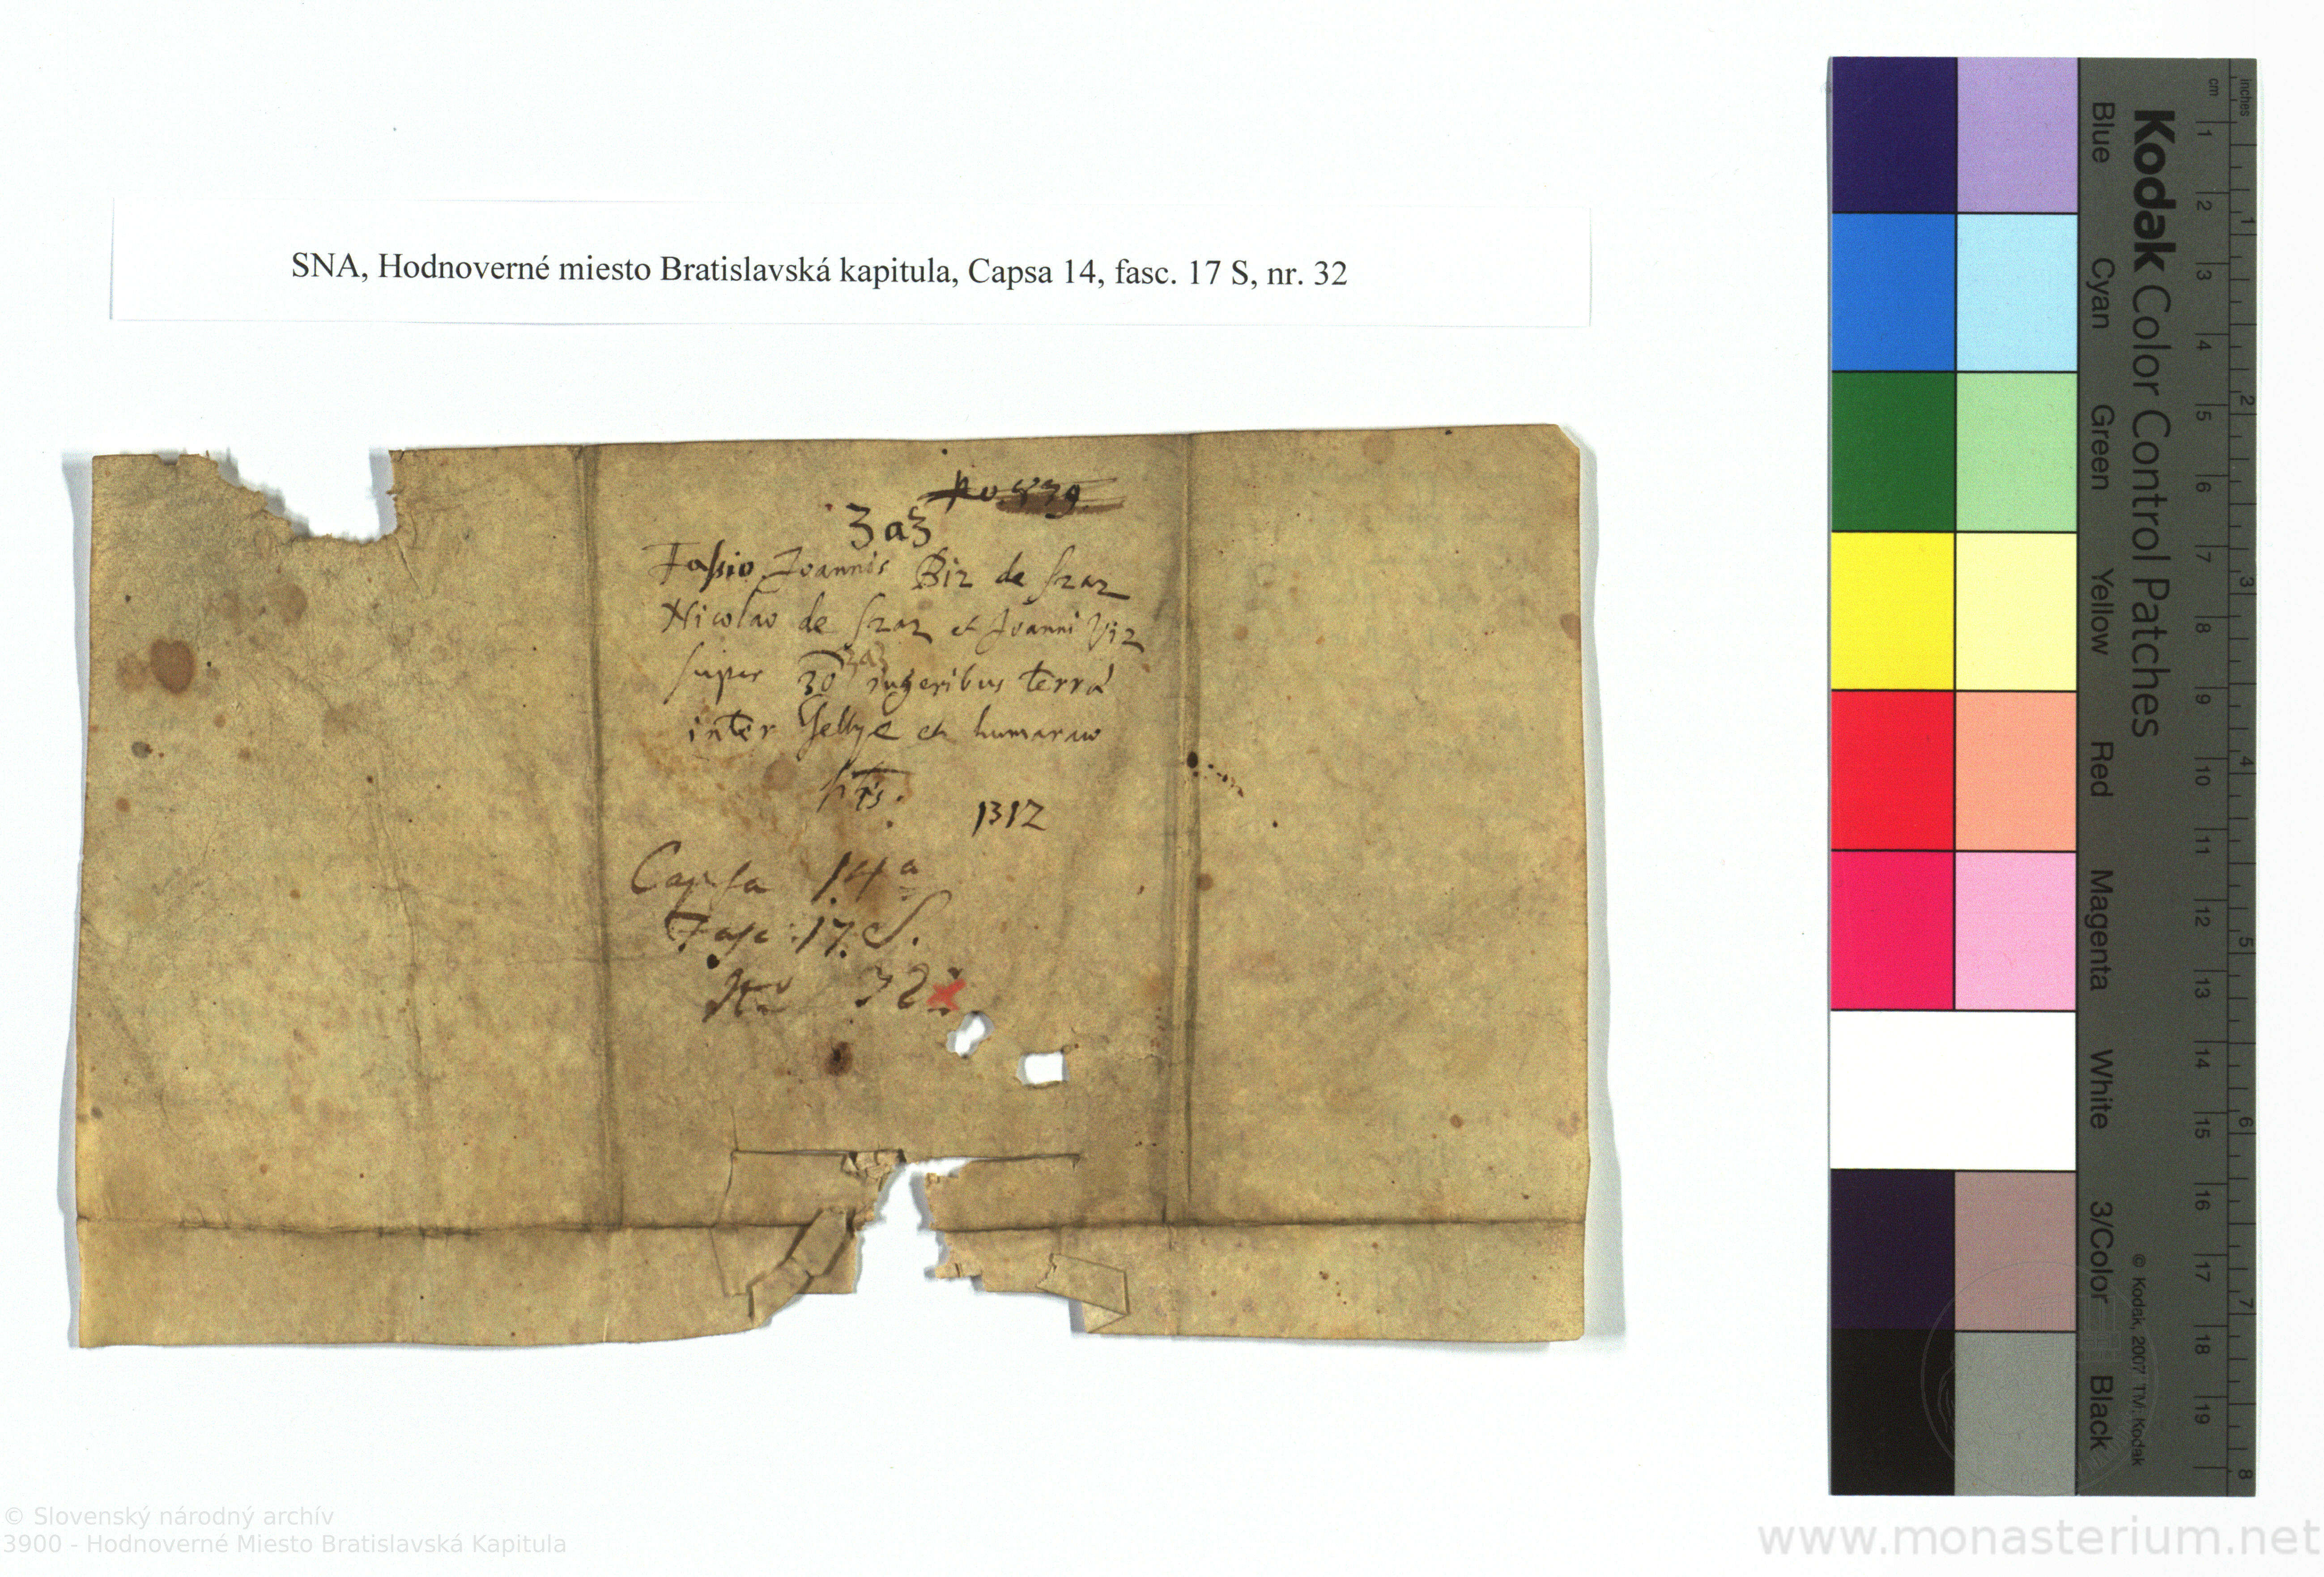 SNA, Hodnoverné miesto Bratislavská kapitula, Capsa 14, fasc. 17 S, nr. 32
No 839.
3a3
Fassio Joannis Biz de Szaz
Nicolao de Szaz et Joanni
super 30 iugeribus terra
inter Gellye et humaraw
1312
Capsa 14a
Fasc: 17. S.
No 32
Kodak Color Control Patches
Blue Cyan Green Yellow Red Magenta White 3/Color Black
© Kodak, 2007 TM: Kodak
cm 1 2 3 4 5 6 7 8 9 10 11 12 13 14 15 16 17 18 19
inches 1 2 3 4 5 6 7 8
© Slovenský národný archív
3900 - Hodnoverné Miesto Bratislavská Kapitula
www.monasterium.net